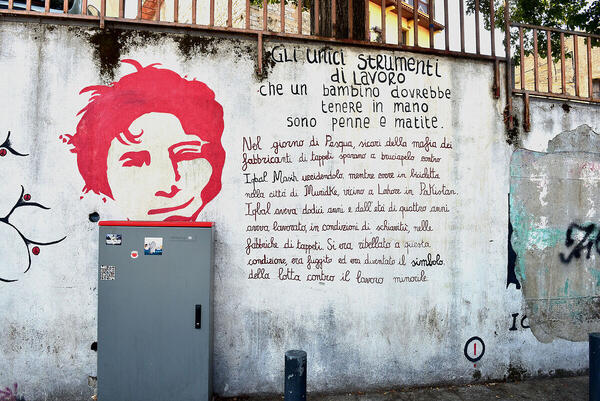 GLI UNICI STRUMENTI
DI LAVORO
CHE UN BAMBINO DOVREBBE
TENERE IN MANO
SONO PENNE E MATITE.
Nel giorno di Pasqua, sicari della mafia dei
fabbricanti di tappeti sparano a bruciapelo contro
Iqbal Masih uccidendolo, mentre corre in bicicletta
nella città di Muridke, vicino a Lahore in Pakistan.
Iqbal aveva dodici anni e dall'età di quattro anni
aveva lavorato, in condizioni di schiavitù, nelle
fabbriche di tappeti. Si era ribellato a questa
condizione, era fuggito ed era diventato il simbolo
della lotta contro il lavoro minorile